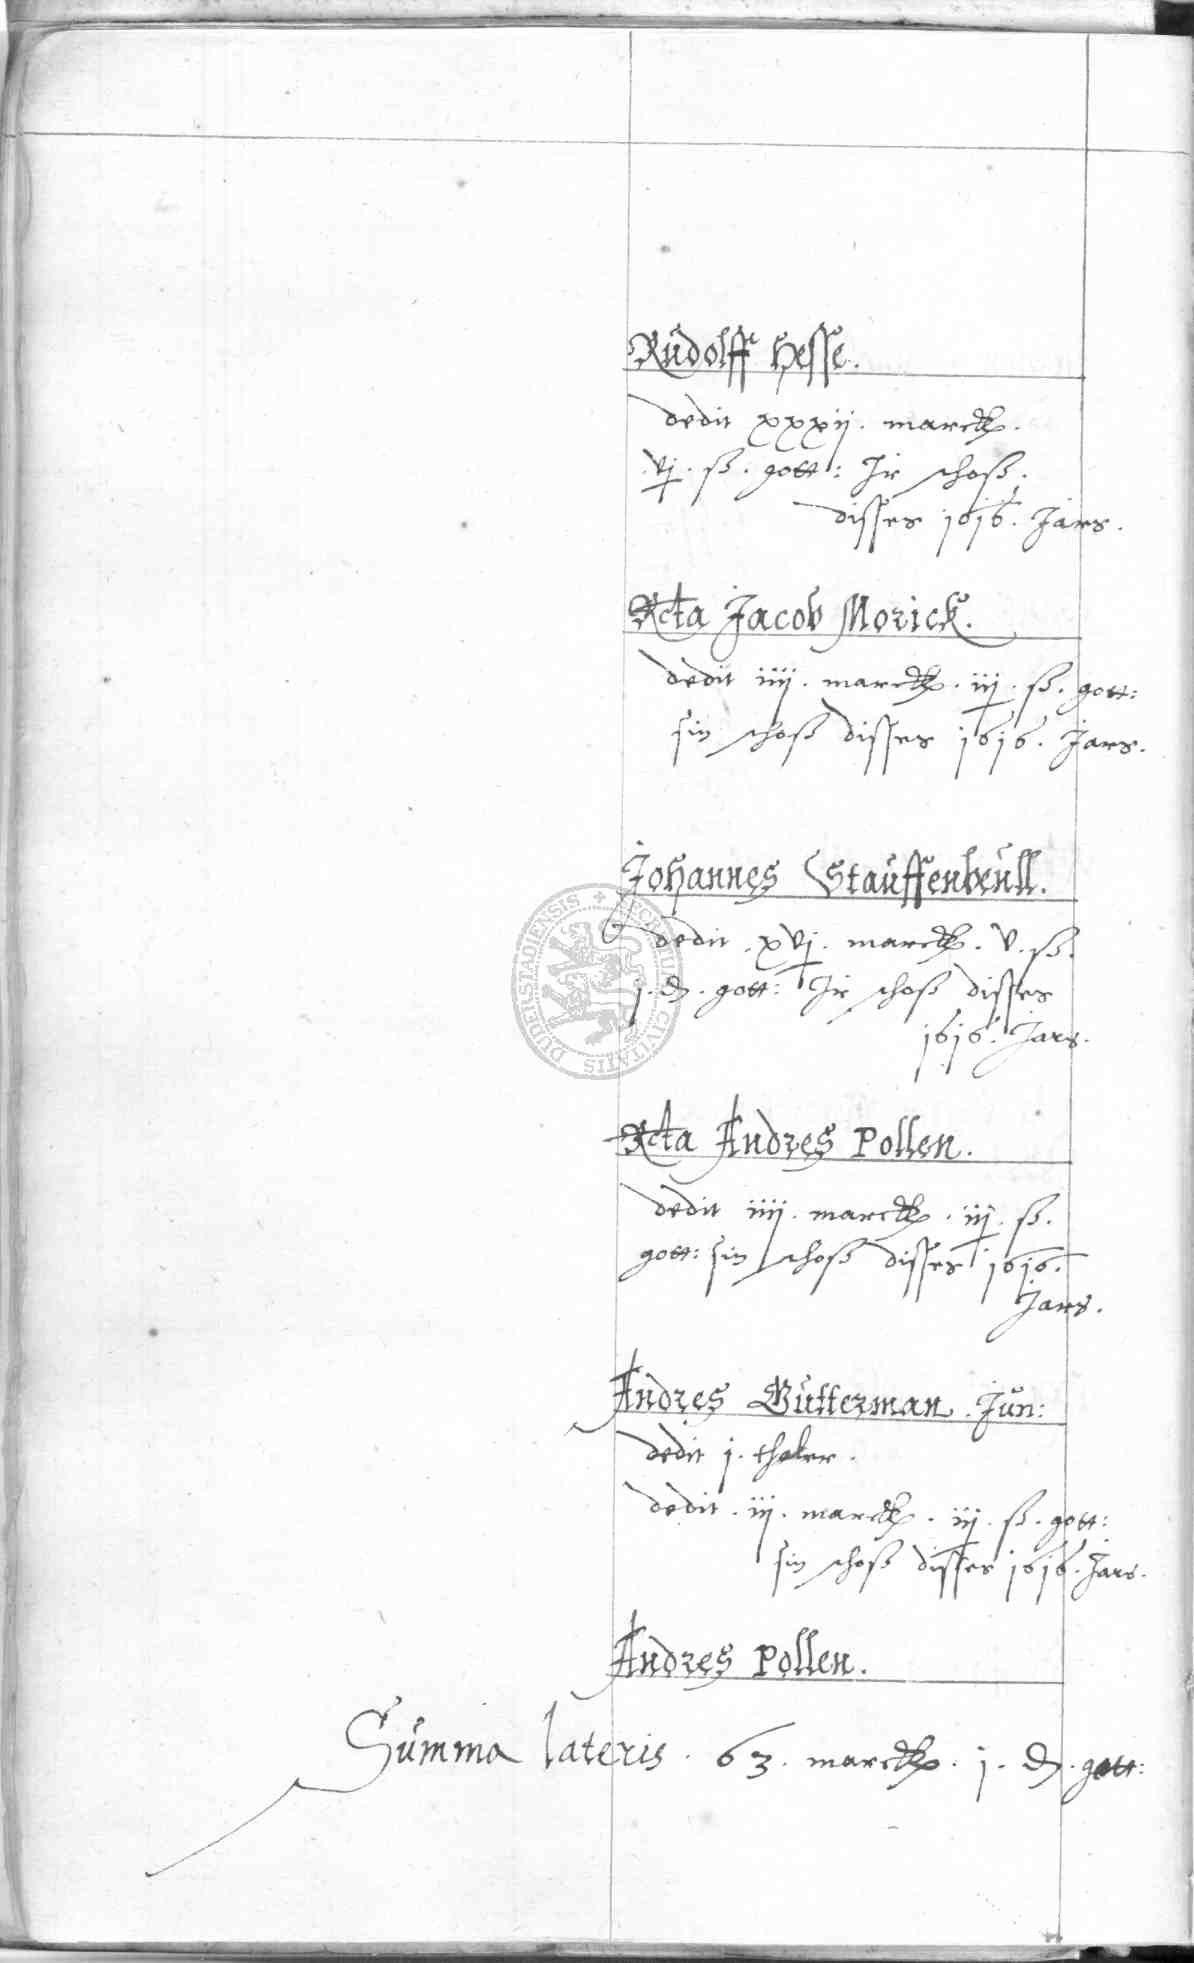 Rudolff Hesse.
dedit xxxij. marck.
vj. ß. gott: Jr schoß
disses 1616. Jars.
Rcta Jacob Morick.
dedit iiij. marck. iij. ß. gott:
sin schoß disses 1616. Jars.
Johannes Stauffenbeull.
dedit xvj. marck. v. ß.
j. d. gott: Jr schoß disses
1616. Jars.
Rcta Andres Pollen.
dedit iiij. marck. iij. ß.
gott: sin schoß disses 1616.
Jars.
Andres Gutterman Jun:
dedit j. thaler.
dedit iij. marck. iij. ß. gott:
sin schoß disses 1616. Jars.
Andres Pollen.
Summa lateris. 63. marck. j. d. gott:
SECRETUM CIVITATIS DUDERSTADIENSIS